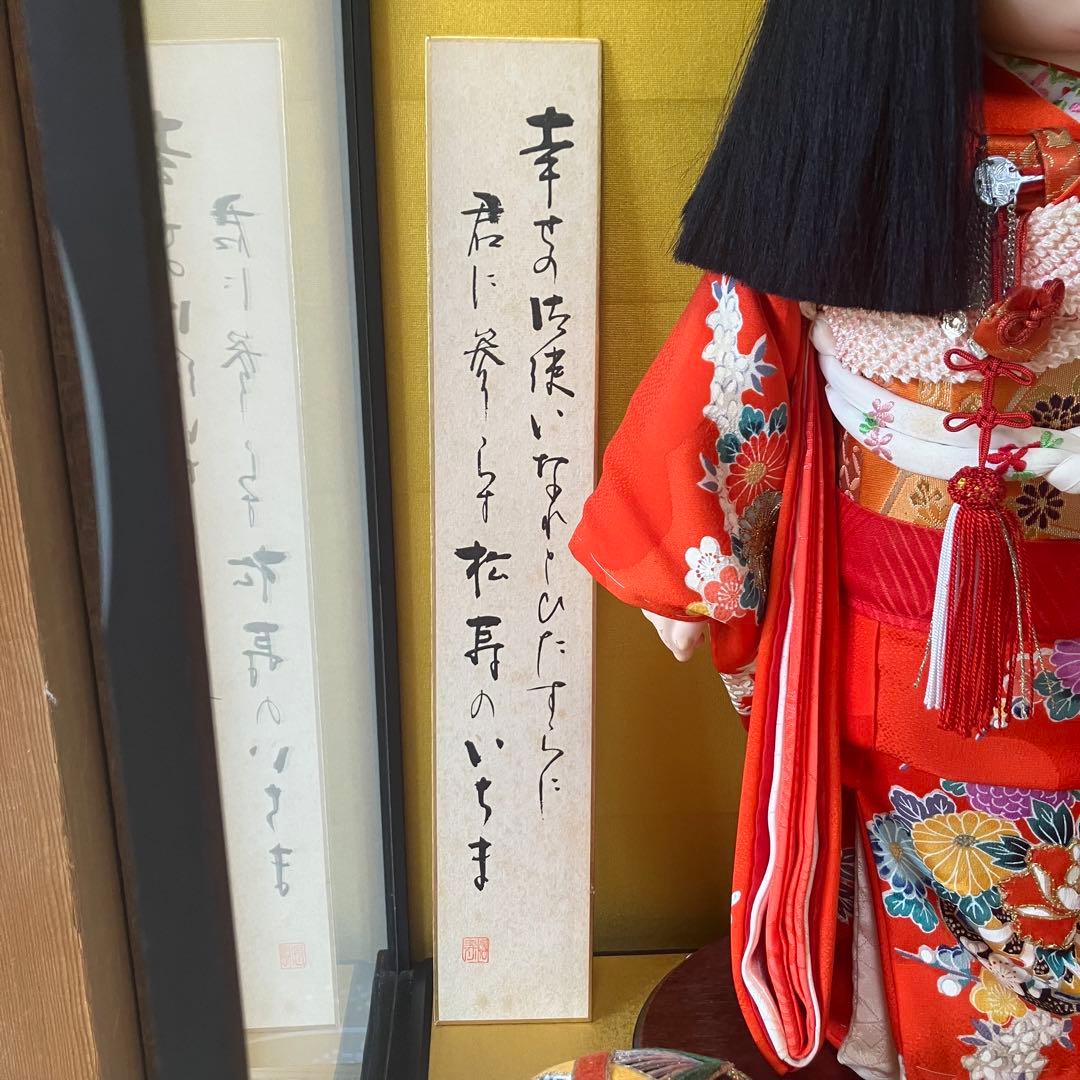 幸せの御使いなれとひたすらに
君に参らす松寿のいちま